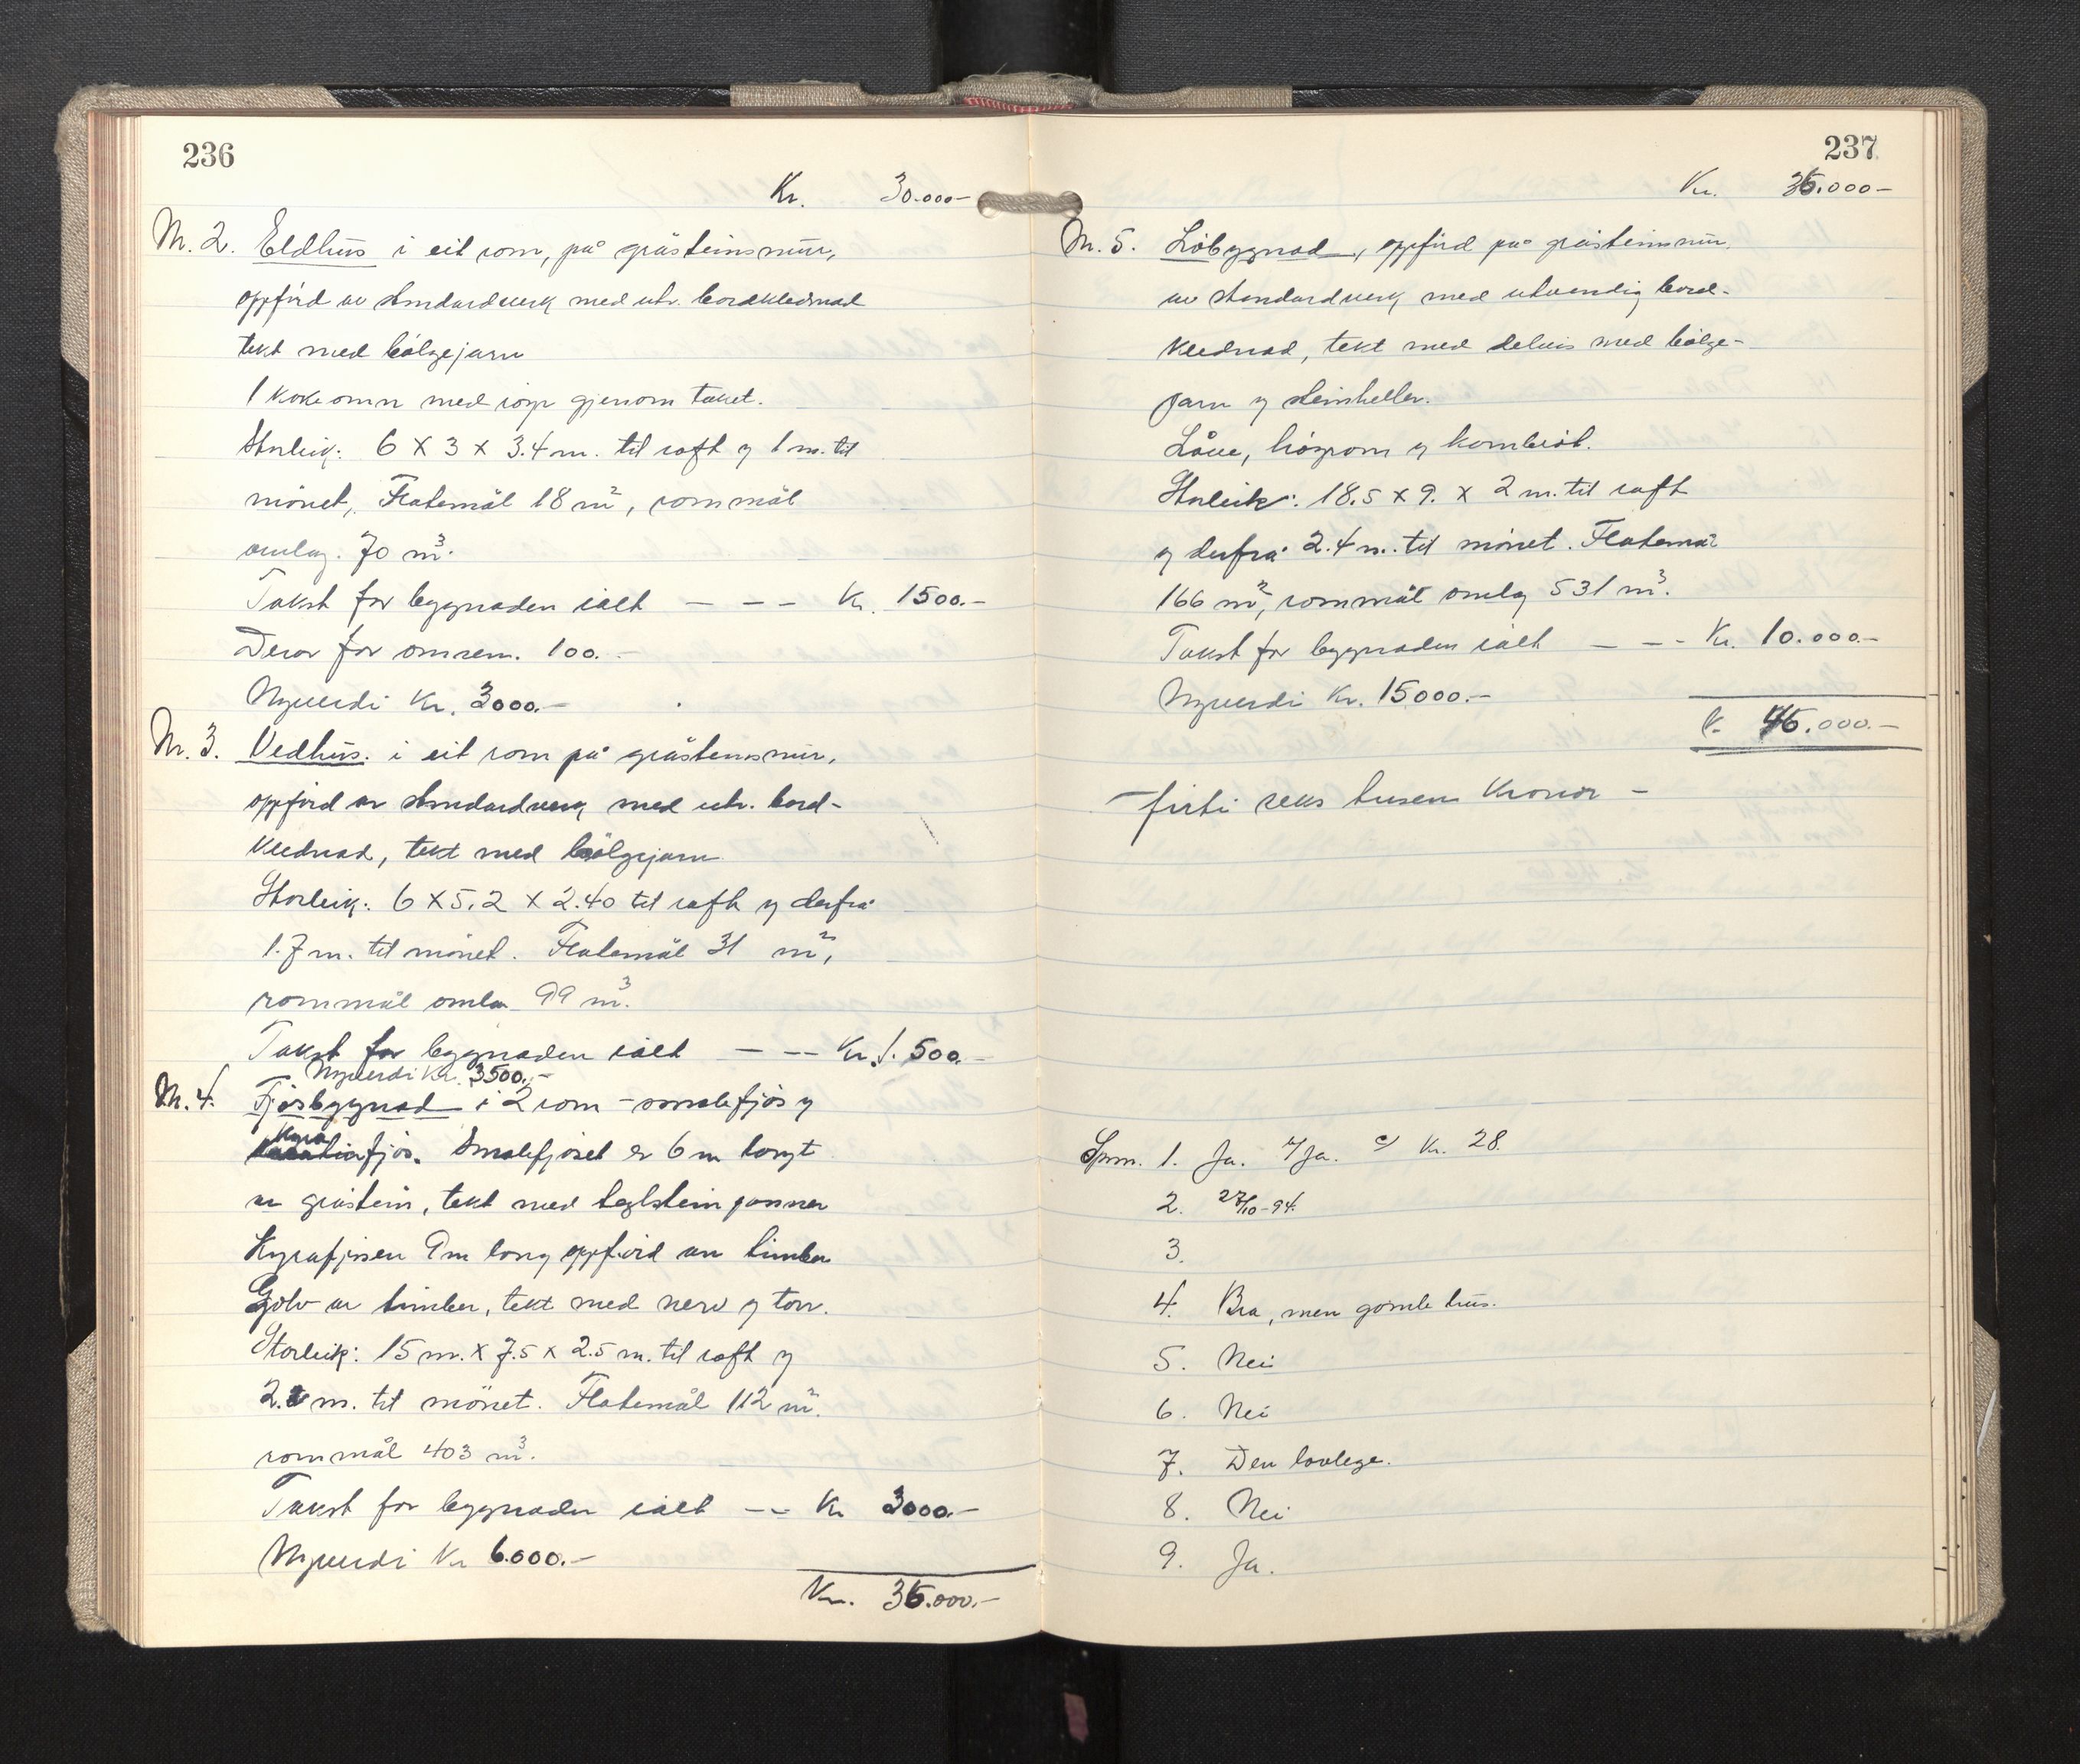 236
Kr. 30.000.-
M. 2. Eldhus i eit rom, på gråsteinsmur,
oppförd av standardverk med utv. bordkledmad
tekt med bölgejarn
1 kokeomn med röyr gjenom taket.
Storleik: 6 x 3 x 3.4 m. til raft og 1 m. til
mönet, Flatemål 18 m², rommål
omlag. 70 m³.
Takst for bygnaden ialt - - - Kr. 1500.-
Derav for omnen. 100.-
Nyverdi Kr. 3000.-
M. 3. Vedhus. i eit rom på gråsteinsmur,
oppförd av standardverk med utv. bord-
klednad, tekt med bölgejarn
Storleik: 6 x 5.2 x 2.40 til raft og derfrå
1.7 m. til mönet. Flatemål 31 m²,
rommål omla 99 m³.
Takst for bygnaden ialt - - - Kr. 1.500.-
Nyverdi Kr. 3500.-
M. 4. Fjösbygnad i 2 rom - smalefjös og
Kyra fjös. Smalefjöset er 6 m langt
av gråstein, tekt med teglsteinpanner
Kyrafjösen 9 m lang oppförd av timber
Golv av timber, tekt med nerv og torv.
Storleik: 15 m. x 7.5 x 2.5 m. til raft og
2. m. til mönet. Flatemål 112 m².
rommål 403 m³.
Takst for bygnaden ialt - - Kr 3000.-
Nyverdi Kr 6.000.-
Kr. 36.000.-
237
Kr. 36.000.-
M. 5. Löbygnad, oppförd på gråsteinsmur.
av standardverk med utvendig bord-
klednad, tekt med delvis med bölge-
jarn og steinheller.
Låve, höyrom og kornbröt.
Storleik: 18.5 x 9. x 2 m. til raft
og derfrå 2.4 m. til mönet. Flatemål
166 m², rommål omlag 531 m³.
Takst for bygnaden ialt - - - Kr. 10.000.-
Nyverdi Kr. 15000.-
K. 46.000.-
- firti seks tusen Kronor -
Spm. 1. Ja. b/ Ja. c/ Kr. 28.
2. 27/10-94.
3.
4. Bra, men gamle hus.
5. Nei
6. Nei
7. Den lovlege.
8. Nei
9. Ja.